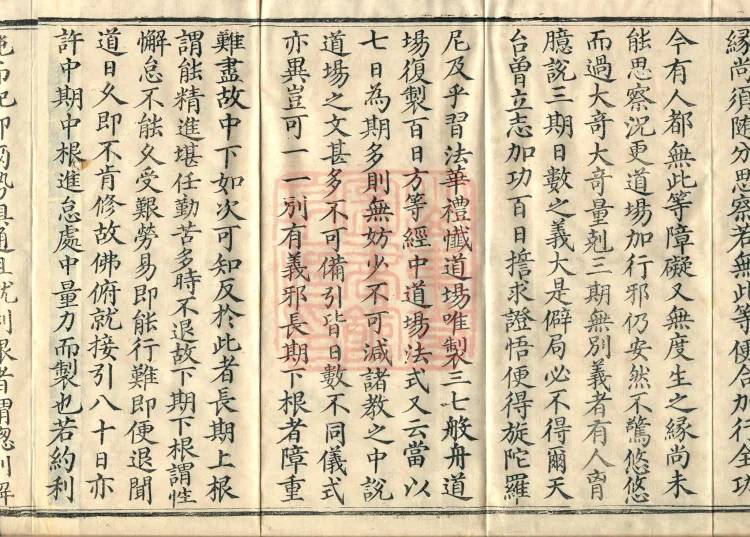 緣尚須隨分思察若無此等便合加行全功
今有人都無此等障礙又無度生之緣尚未
能思察況更道場加行邪仍安然不驚悠悠
而過大奇大奇量剋三期無別義者有人胷
臆說三期日數之義大是僻局必不得爾天
台曾立志加功百日誓求證悟便得旋陀羅
尼及乎習法華禮懺道場唯製三七般舟道
場復製百日方等經中道場法式又云當以
七日為期多則無妨少不可減諸教之中說
道場之文甚多不可備引皆日數不同儀式
亦異豈可一一別有義邪長期下根者障重
難盡故中下如次可知反於此者長期上根
謂能精進堪任勤苦多時不退故下期下根謂性
懈怠不能久受艱勞易即能行難即便退聞
道日久即不肯修故佛俯就接引八十日亦
許中期中根進怠處中量力而製也若約利